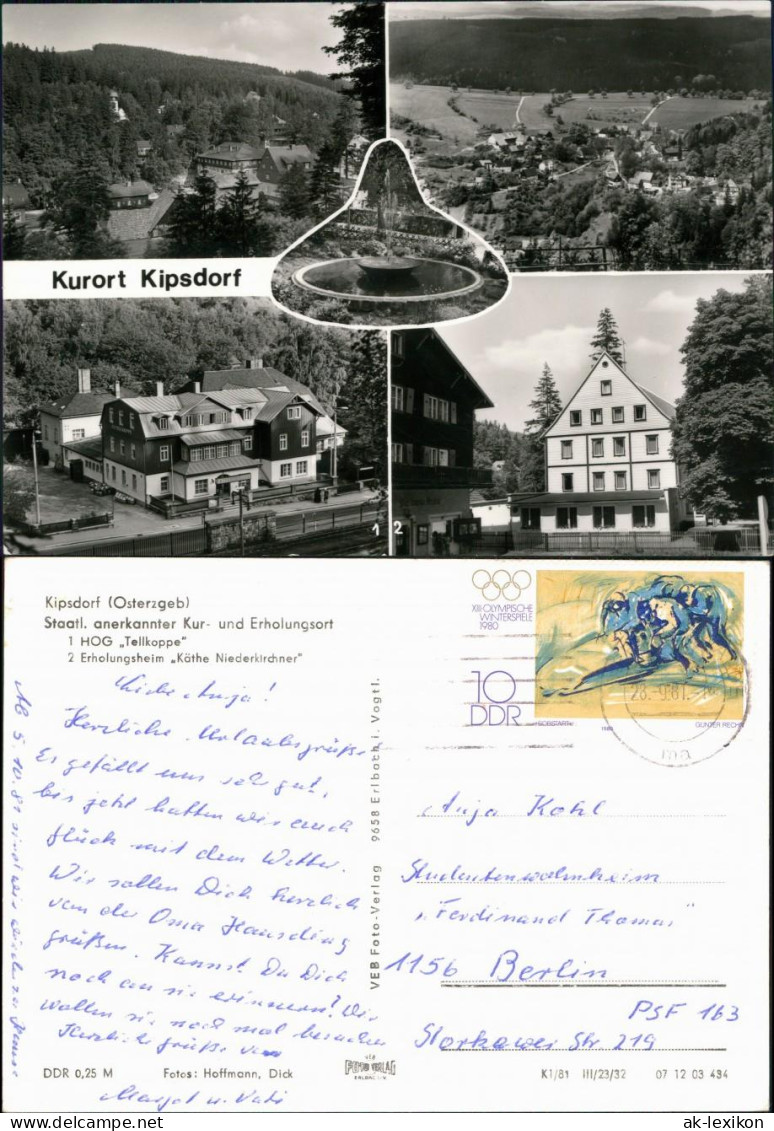 Kurort Kipsdorf
1 2
Kipsdorf (Osterzgeb)
Staatl. anerkannter Kur- und Erholungsort
1 HOG „Tellkoppe"
2 Erholungsheim „Käthe Niederkirchner"
XIII. OLYMPISCHE
WINTERSPIELE
1980
10
DDR
1980
28.-9.81.
Liebe Anja!
Herzliche Urlaubsgrüße
Es gefällt uns sehr gut,
bis jetzt hatten wir auch
Glück mit dem Wetter.
Wir sollen Dich herzlich
von der Oma Hansding
grüßen. Kannst Du Dich
noch an sie erinnern? Wir
wollen sie noch mal besuchen
Herzliche Grüße von
Margot u. Vati
Ab 5.10.81 sind wir wieder zu Hause
VEB Foto-Verlag 9658 Erlbach i. Vogtl.
Anja Kohl
Studentenwohnheim
„Ferdinand Thomas"
1156 Berlin
PSF 163
Storkower Str 219
DDR 0,25 M Fotos: Hoffmann, Dick
VEB
FOTO VERLAG
ERLBACH
K1/81 III/23/32 07 12 03 434
www.delcampe.net
ak-lexikon